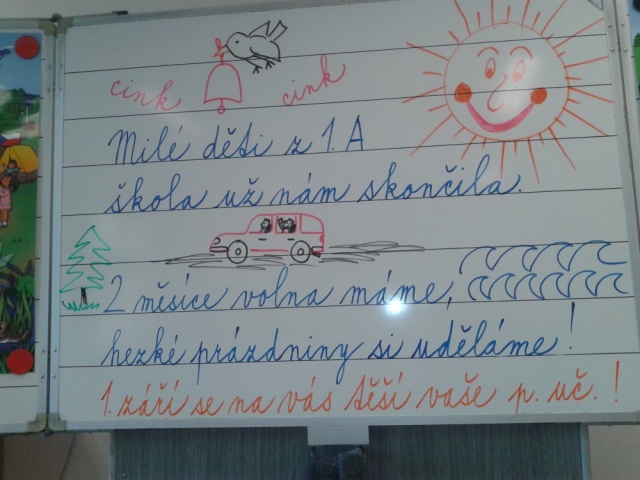 cink cink
Milé děti z 1. A
škola už nám skončila.
2 měsíce volna máme,
hezké prázdniny si uděláme!
1. září se na vás těší vaše p. uč.!